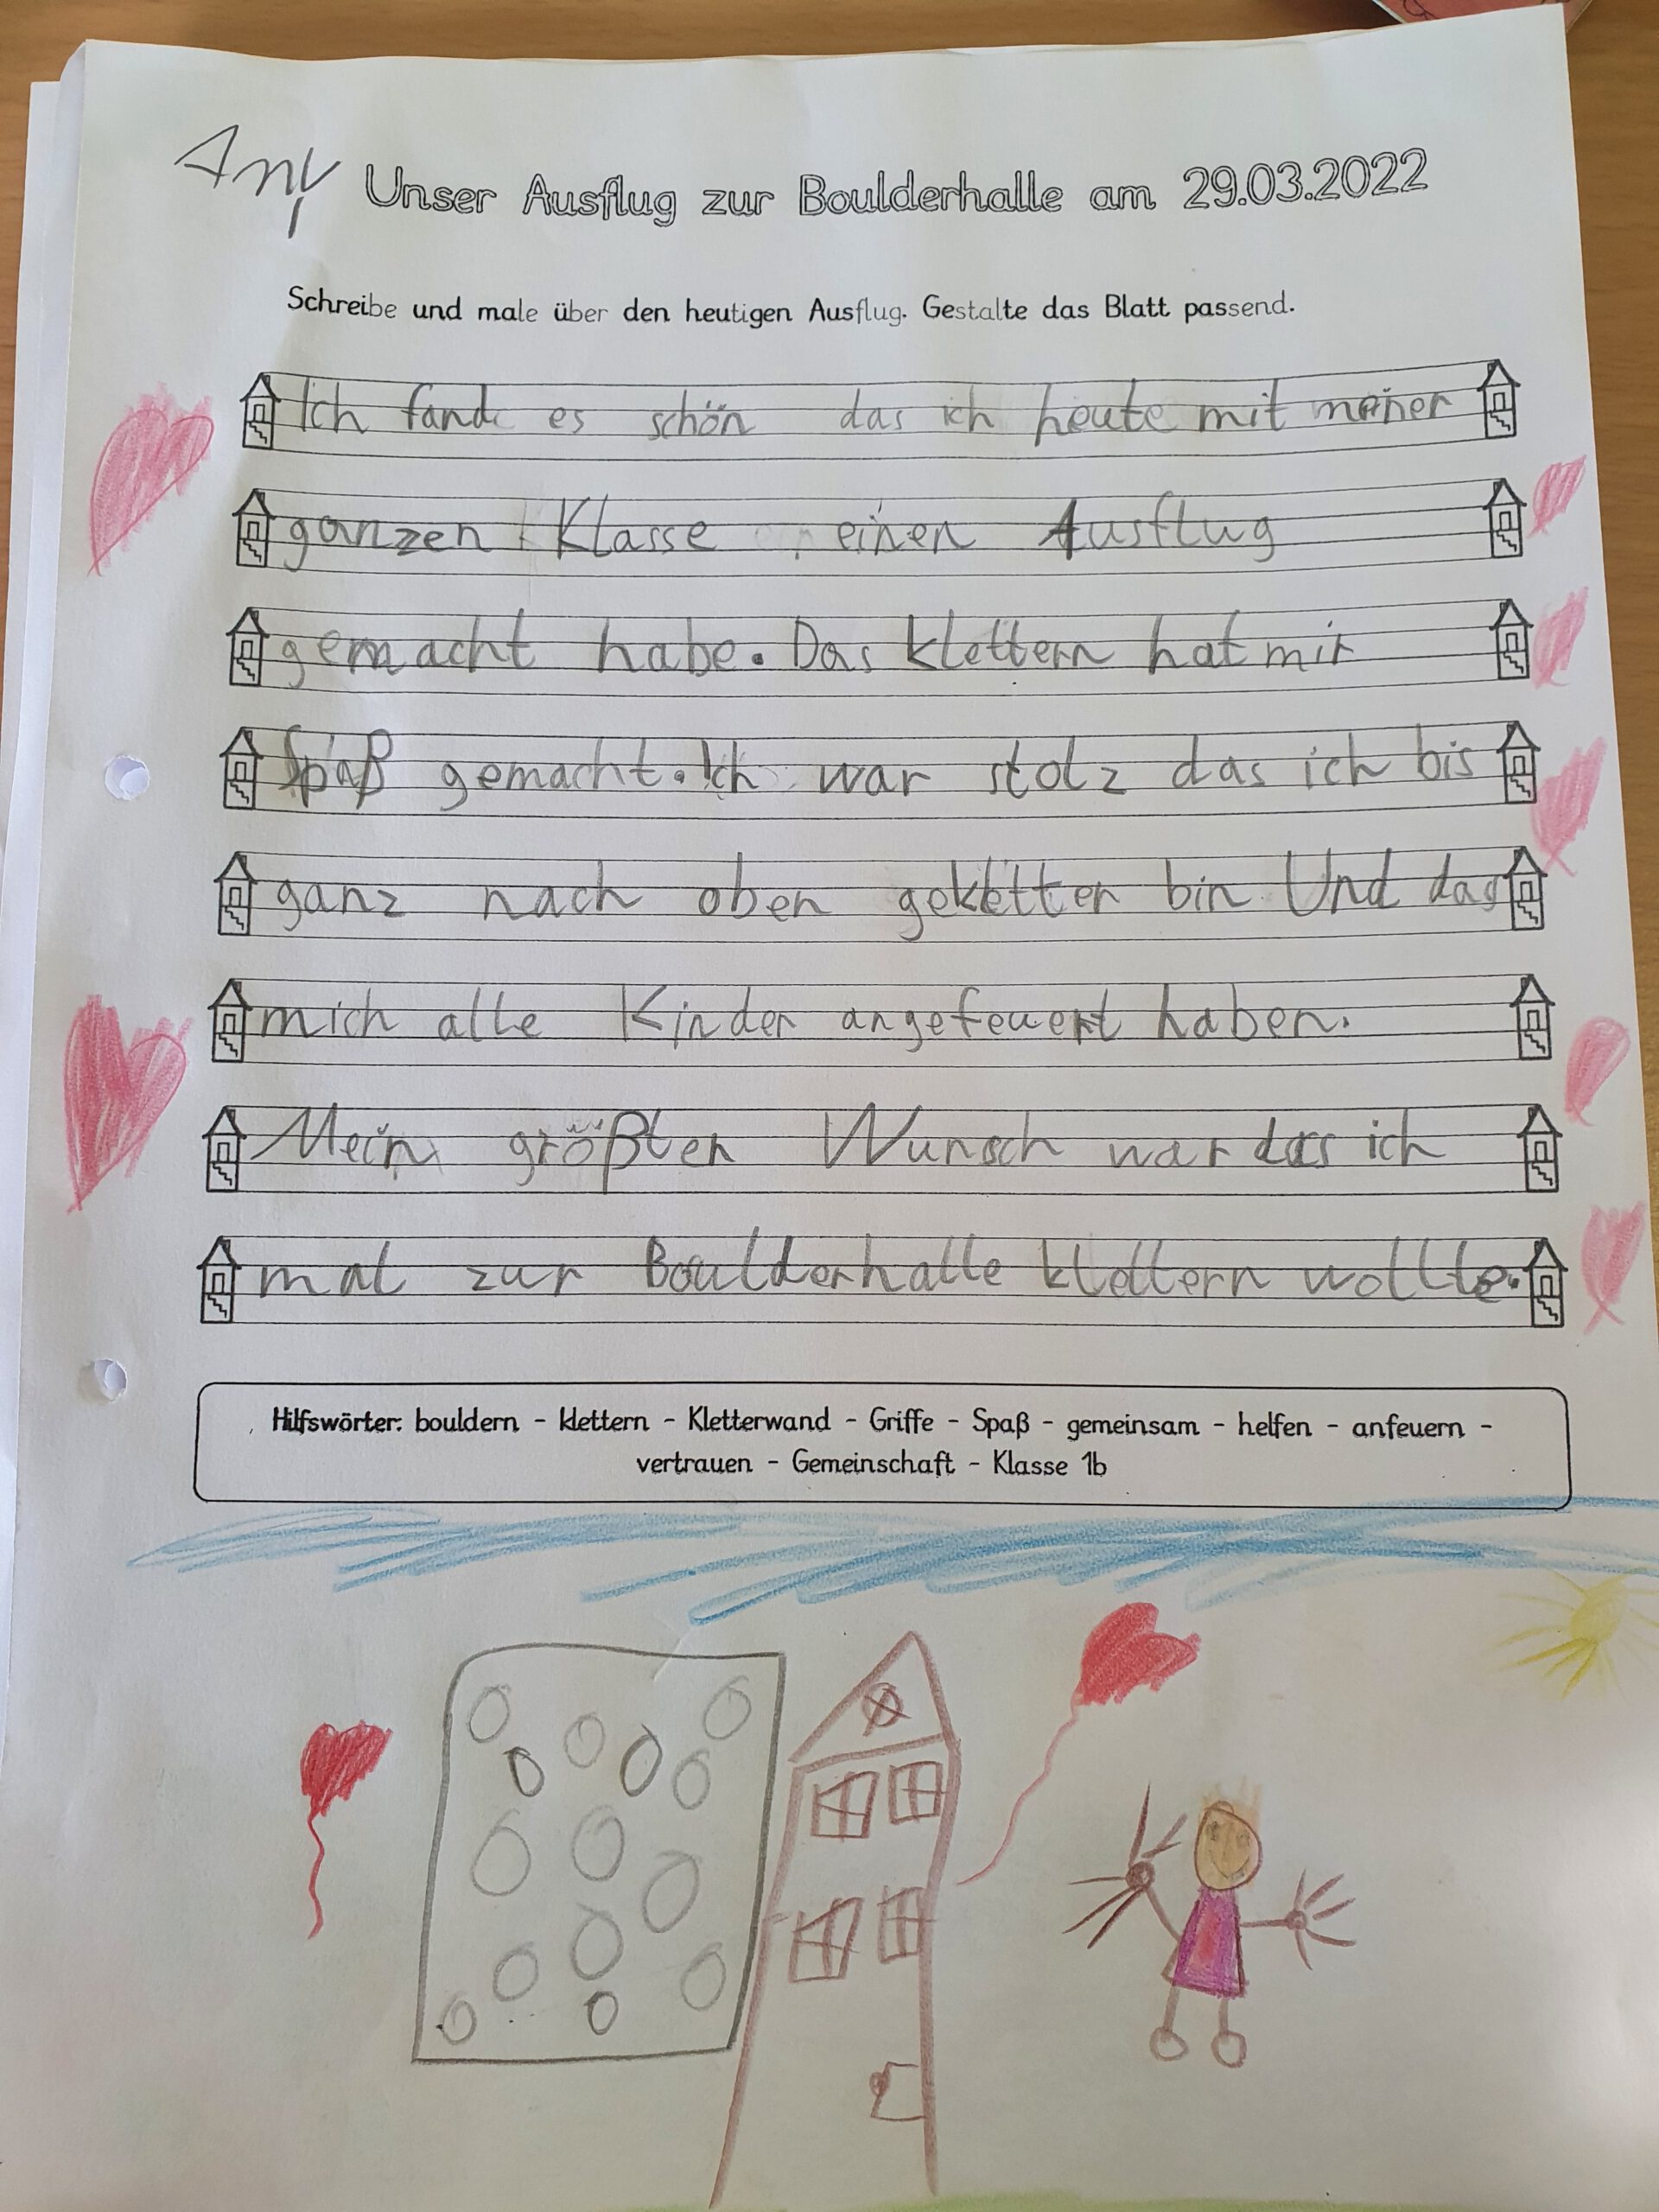 Any
Unser Ausflug zur Boulderhalle am 29.03.2022
Schreibe und male über den heutigen Ausflug. Gestalte das Blatt passend.
Ich fande es schön das ich heute mit meiner
ganzen Klasse einen Ausflug
gemacht habe. Das klettern hat mir
Spaß gemacht. Ich war stolz das ich bis
ganz nach oben gekletter bin Und das
mich alle Kinder angefeuert haben.
Mein größter Wunsch war das ich
mal zur Boulderhalle klettern wollte.
Hilfswörter: bouldern - klettern - Kletterwand - Griffe - Spaß - gemeinsam - helfen - anfeuern -
vertrauen - Gemeinschaft - Klasse 1b